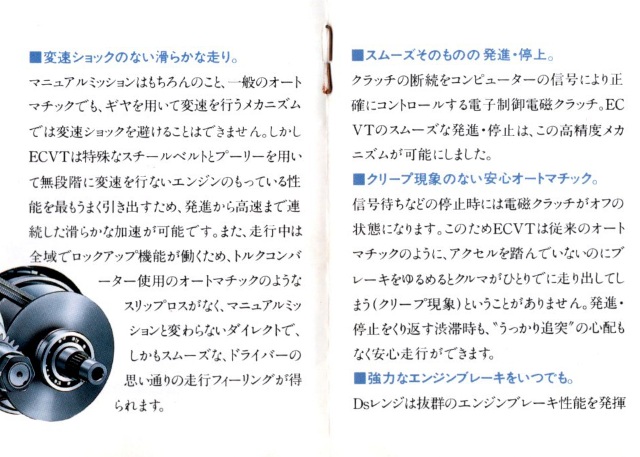 ■変速ショックのない滑らかな走り。
マニュアルミッションはもちろんのこと、一般のオート
マチックでも、ギヤを用いて変速を行うメカニズム
では変速ショックを避けることはできません。しかし
ECVTは特殊なスチールベルトとプーリーを用い
て無段階に変速を行ないエンジンのもっている性
能を最もうまく引き出すため、発進から高速まで連
続した滑らかな加速が可能です。また、走行中は
全域でロックアップ機能が働くため、トルクコンバ
ーター使用のオートマチックのような
スリップロスがなく、マニュアルミッ
ションと変わらないダイレクトで、
しかもスムーズな、ドライバーの
思い通りの走行フィーリングが得
られます。
■スムーズそのものの発進・停止。
クラッチの断続をコンピューターの信号により正
確にコントロールする電子制御電磁クラッチ。EC
VTのスムーズな発進・停止は、この高精度メカ
ニズムが可能にしました。
■クリープ現象のない安心オートマチック。
信号待ちなどの停止時には電磁クラッチがオフの
状態になります。このためECVTは従来のオート
マチックのように、アクセルを踏んでいないのにブ
レーキをゆるめるとクルマがひとりでに走り出してし
まう(クリープ現象)ということがありません。発進・
停止をくり返す渋滞時も、〝うっかり追突〟の心配も
なく安心走行ができます。
■強力なエンジンブレーキをいつでも。
Dsレンジは抜群のエンジンブレーキ性能を発揮